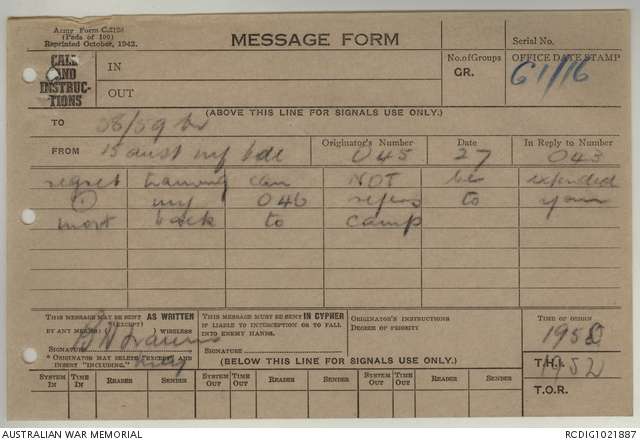 Army Form C.2128
(Pads of 100)
Reprinted October, 1942.
MESSAGE FORM
Serial No.
CALL AND INSTRUC-TIONS
IN
OUT
No. of Groups
GR.
OFFICE DATE STAMP
G1/16
(ABOVE THIS LINE FOR SIGNALS USE ONLY.)
TO 58/59 bn
FROM 15 aust inf bde
Originator's Number 045
Date 27
In Reply to 043
regret training can NOT be extended
my 046 refers to your
move back to camp
THIS MESSAGE MAY BE SENT AS WRITTEN
(EXCEPT)
BY ANY MEANS ( ) WIRELESS
SIGNATURE
* ORIGINATOR MAY DELETE "EXCEPT" AND
INSERT "INCLUDING."
THIS MESSAGE MUST BE SENT IN CYPHER
IF LIABLE TO INTERCEPTION OR TO FALL
INTO ENEMY HANDS.
SIGNATURE
ORIGINATOR'S INSTRUCTIONS
DEGREE OF PRIORITY
TIME OF ORIGIN
1950
T.H.I.
1952
T.O.R.
(BELOW THIS LINE FOR SIGNALS USE ONLY.)
SYSTEM IN TIME IN READER SENDER SYSTEM OUT TIME OUT READER SENDER SYSTEM OUT TIME OUT READER SENDER
AUSTRALIAN WAR MEMORIAL
RCDIG1021887